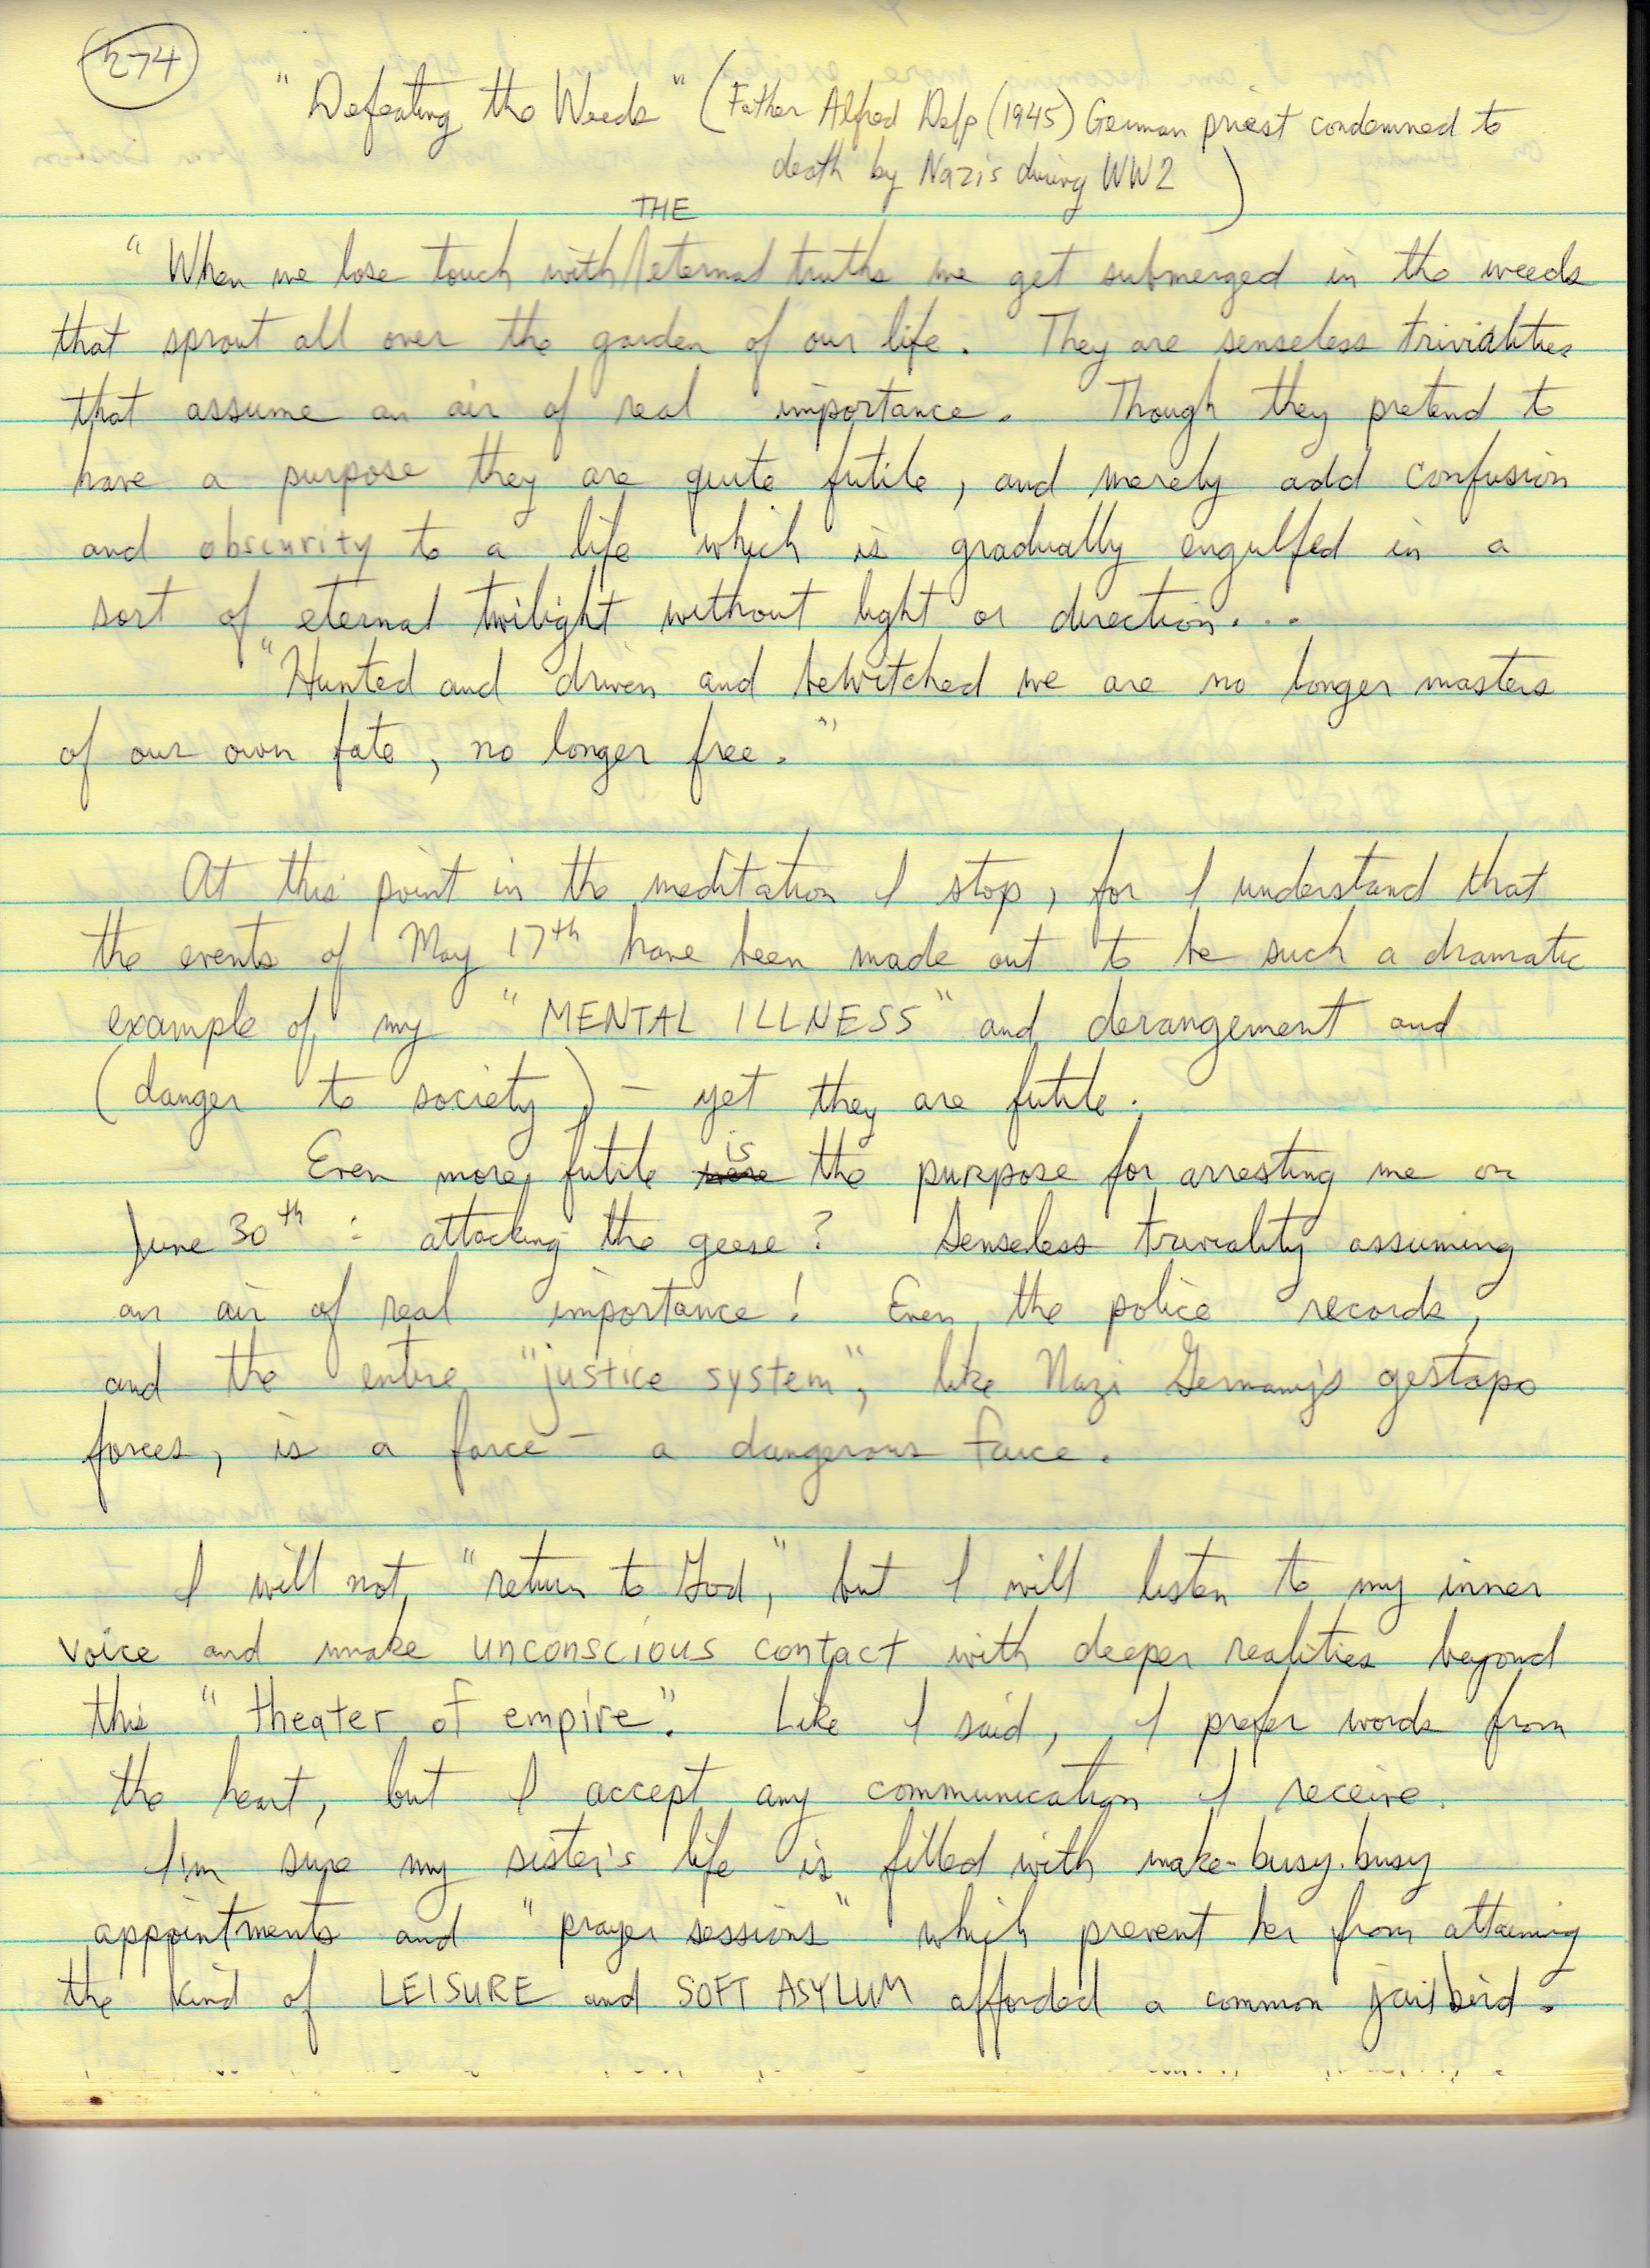 274
"Defeating the Weeds" (Father Alfred Delp (1945) German priest condemned to
death by Nazis during WW2)
THE
"When we lose touch with eternal truths we get submerged in the weeds
that sprout all over the garden of our life. They are senseless trivialities
that assume an air of real importance. Though they pretend to
have a purpose they are quite futile, and merely add confusion
and obscurity to a life which is gradually engulfed in a
sort of eternal twilight without light or direction...
"Hunted and driven and bewitched we are no longer masters
of our own fate, no longer free."
At this point in the meditation I stop, for I understand that
the events of May 17th have been made out to be such a dramatic
example of my "MENTAL ILLNESS" and derangement and
(danger to society) - yet they are futile.
is
Even more futile were the purpose for arresting me on
June 30th: attacking the geese? Senseless triviality assuming
an air of real importance! Even the police records,
and the entire "justice system", like Nazi Germany's gestapo
forces, is a farce - a dangerous farce.
I will not "return to God," but I will listen to my inner
voice and make unconscious contact with deeper realities beyond
this "theater of empire". Like I said, I prefer words from
the heart, but I accept any communication I receive.
I'm sure my sister's life is filled with make-busy-busy
appointments and "prayer sessions" which prevent her from attaining
the kind of LEISURE and SOFT ASYLUM afforded a common jailbird.